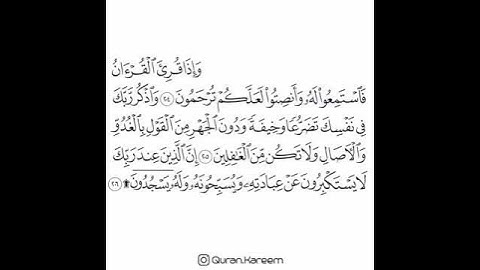 وَإِذَا قُرِئَ ٱلْقُرْءَانُ
فَٱسْتَمِعُوا۟ لَهُۥ وَأَنصِتُوا۟ لَعَلَّكُمْ تُرْحَمُونَ ٢٠٤ وَٱذْكُر رَّبَّكَ
فِى نَفْسِكَ تَضَرُّعًا وَخِيفَةً وَدُونَ ٱلْجَهْرِ مِنَ ٱلْقَوْلِ بِٱلْغُدُوِّ
وَٱلْـَٔاصَالِ وَلَا تَكُن مِّنَ ٱلْغَـٰفِلِينَ ٢٠٥ إِنَّ ٱلَّذِينَ عِندَ رَبِّكَ
لَا يَسْتَكْبِرُونَ عَنْ عِبَادَتِهِۦ وَيُسَبِّحُونَهُۥ وَلَهُۥ يَسْجُدُونَ ۩ ٢٠٦
Quran.Kareem